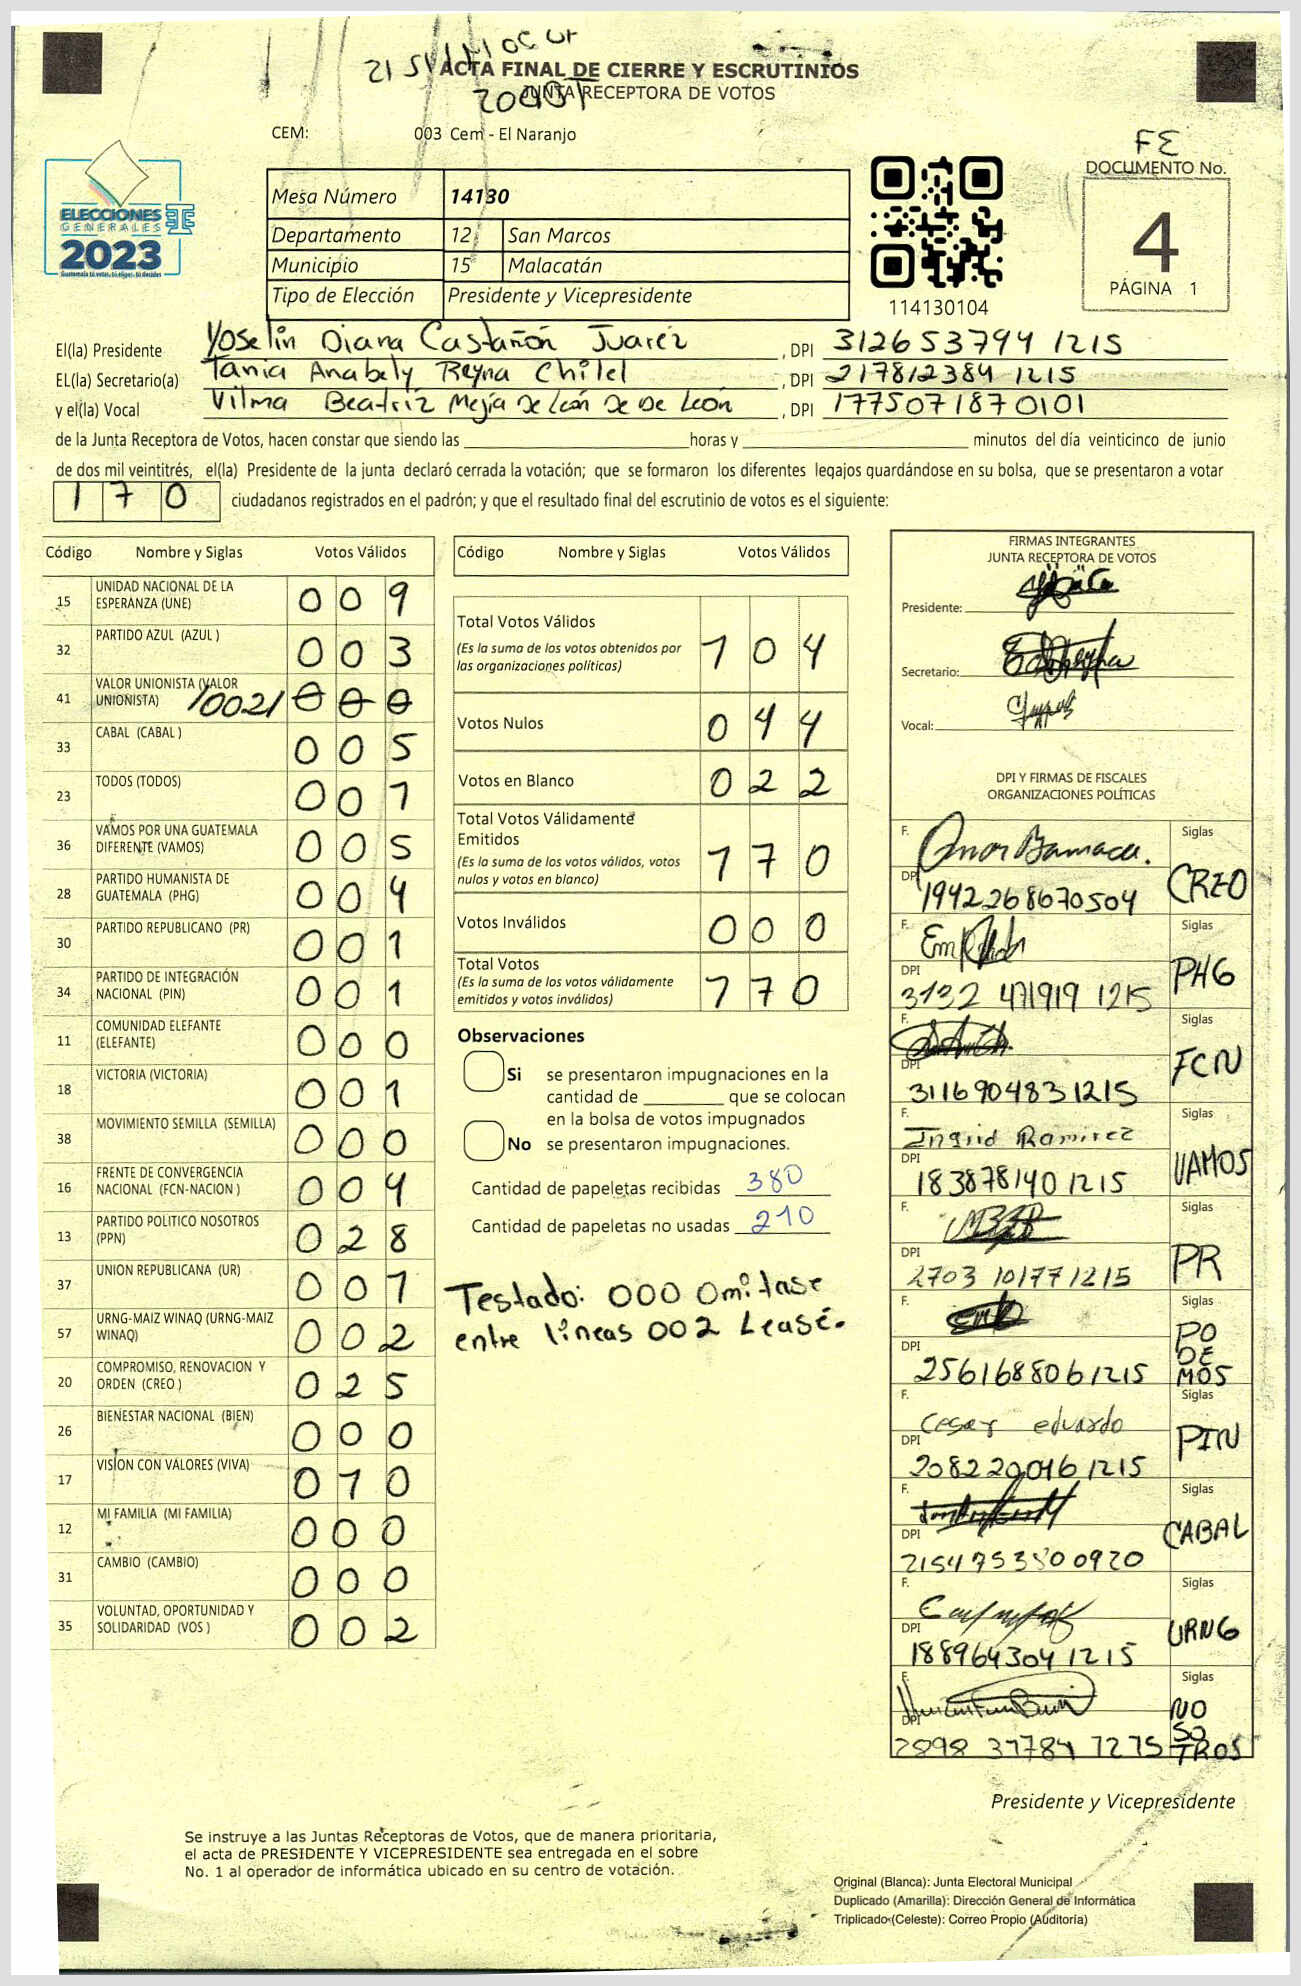 ACTA FINAL DE CIERRE Y ESCRUTINIOS
JUNTA RECEPTORA DE VOTOS
CEM: 003 Cem - El Naranjo
FE
DOCUMENTO No.
4
PÁGINA 1
ELECCIONES
GENERALES
2023
Guatemala tú votas, tú eliges, tú decides
Mesa Número 14130
Departamento 12 San Marcos
Municipio 15 Malacatán
Tipo de Elección Presidente y Vicepresidente
114130104
El(la) Presidente Yoselin Diana Castañón Juarez, DPI 312653794 1215
EL(la) Secretario(a) Tania Anabely Reyna Chilel, DPI 217812384 1215
y el(la) Vocal Vilma Beatríz Mejía De León De De León, DPI 1775071870101
de la Junta Receptora de Votos, hacen constar que siendo las horas y minutos del día veinticinco de junio
de dos mil veintitrés, el(la) Presidente de la junta declaró cerrada la votación; que se formaron los diferentes legajos quardándose en su bolsa, que se presentaron a votar
170 ciudadanos registrados en el padrón; y que el resultado final del escrutinio de votos es el siguiente:
Código Nombre y Siglas Votos Válidos
15 UNIDAD NACIONAL DE LA ESPERANZA (UNE) 009
32 PARTIDO AZUL (AZUL ) 003
41 VALOR UNIONISTA (VALOR UNIONISTA) /002/ 000
33 CABAL (CABAL ) 005
23 TODOS (TODOS) 001
36 VAMOS POR UNA GUATEMALA DIFERENTE (VAMOS) 005
28 PARTIDO HUMANISTA DE GUATEMALA (PHG) 004
30 PARTIDO REPUBLICANO (PR) 001
34 PARTIDO DE INTEGRACIÓN NACIONAL (PIN) 001
11 COMUNIDAD ELEFANTE (ELEFANTE) 000
18 VICTORIA (VICTORIA) 001
38 MOVIMIENTO SEMILLA (SEMILLA) 000
16 FRENTE DE CONVERGENCIA NACIONAL (FCN-NACION ) 004
13 PARTIDO POLITICO NOSOTROS (PPN) 028
37 UNION REPUBLICANA (UR) 001
57 URNG-MAIZ WINAQ (URNG-MAIZ WINAQ) 002
20 COMPROMISO, RENOVACION Y ORDEN (CREO ) 025
26 BIENESTAR NACIONAL (BIEN) 000
17 VISION CON VALORES (VIVA) 010
12 MI FAMILIA (MI FAMILIA) 000
31 CAMBIO (CAMBIO) 000
35 VOLUNTAD, OPORTUNIDAD Y SOLIDARIDAD (VOS ) 002
Código Nombre y Siglas Votos Válidos
Total Votos Válidos 104
(Es la suma de los votos obtenidos por
las organizaciones políticas)
Votos Nulos 044
Votos en Blanco 022
Total Votos Válidamente
Emitidos 170
(Es la suma de los votos válidos, votos
nulos y votos en blanco)
Votos Inválidos 000
Total Votos 170
(Es la suma de los votos válidamente
emitidos y votos inválidos)
Observaciones
Si se presentaron impugnaciones en la
cantidad de que se colocan
en la bolsa de votos impugnados
No se presentaron impugnaciones.
Cantidad de papeletas recibidas 380
Cantidad de papeletas no usadas 210
Testado: 000 Omitase
entre líneas 002 Lease.
FIRMAS INTEGRANTES
JUNTA RECEPTORA DE VOTOS
Presidente:
Secretario:
Vocal:
DPI Y FIRMAS DE FISCALES
ORGANIZACIONES POLÍTICAS
F. Siglas
DPI 1942268670504 CREO
F. Siglas
DPI 3132 471919 1215 PHG
F. Siglas
DPI 311690483 1215 FCN
F. Ingrid Ramirez Siglas
DPI 183878140 1215 VAMOS
F. Siglas
DPI 2703 10177 1215 PR
F. Siglas
DPI 256168806 1215 PODEMOS
F. Cesar eduardo Siglas
DPI 208220046 1215 PIN
F. Siglas
DPI CABAL
F. Siglas
DPI 188964304 1215 URNG
F. Siglas
DPI NOSOTROS
Presidente y Vicepresidente
Se instruye a las Juntas Receptoras de Votos, que de manera prioritaria,
el acta de PRESIDENTE Y VICEPRESIDENTE sea entregada en el sobre
No. 1 al operador de informática ubicado en su centro de votación.
Original (Blanca): Junta Electoral Municipal
Duplicado (Amarilla): Dirección General de Informática
Triplicado (Celeste): Correo Propio (Auditoría)